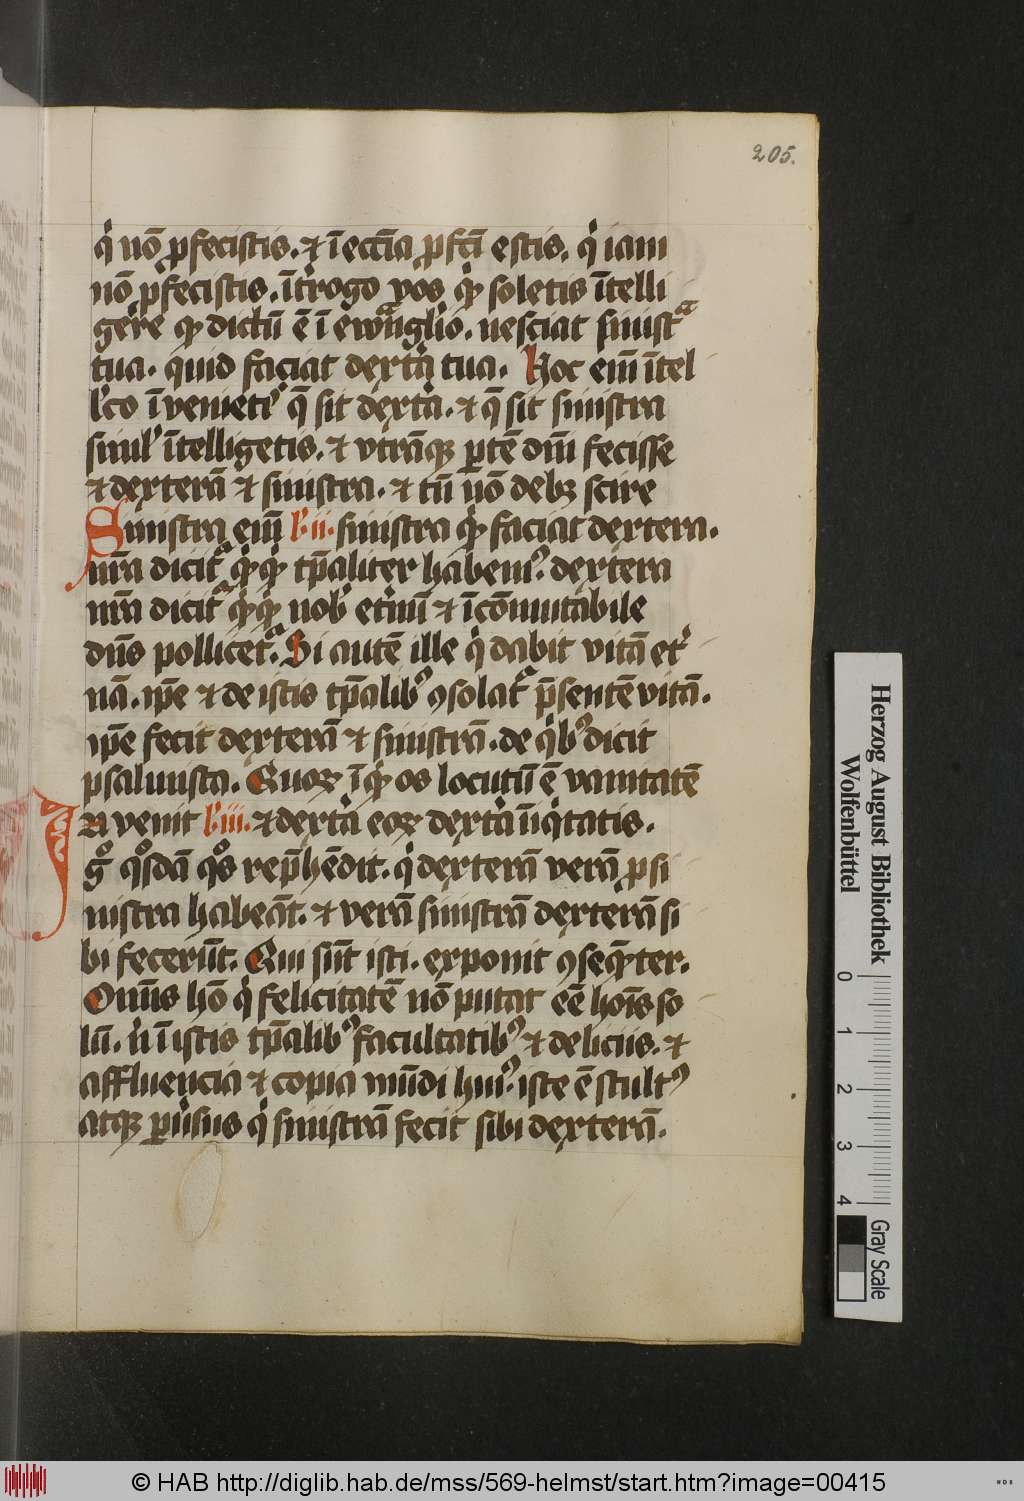 205.
q̇ nō ꝓfecistis. ⁊ ī ecc̄ia ꝓfcī estis. q̇ iam
nō ꝓfecistis. īt̓rogo vos qͥ soletis ītelli
gere qͥ dictū ē ī ewͣnglio. nesciat sinistͣ
tua. quid faciat dext̓a tua. Hoc eī ītel
l̓co īvenietr̓ q̄ sit dext̓a. ⁊ q̄ sit sinistra
simul̓ ītelligetis. ⁊ vtrāqꝫ ꝑtē dm̄ fecisse
⁊ dexterā ⁊ sinistra. ⁊ tn̄ nō debꝫ scire
Sinistra eī l̓ ii. sinistra qͥ faciat dextera.
nr̄a dicitͬ tp̄aliter habemꝰ. dextera
nr̄a dicitͬ nob̓ et̓nū ⁊ īcōmutabile
dn̄s pollicetͬ. Si autē ille q̇ dabit vitā et̓
nā. ip̄e ⁊ de istis tp̄alibꝰ ꝯsolatͬ p̄sentē vitā.
ip̄e fecit dexterā ⁊ sinistrā. de qͥbꝰ dicit
psalmista. Quoꝝ os locutū ē vanitatē
In venit l̓ iii. ⁊ dext̓a eoꝝ dext̓a īiqͥtatis.
gͦ qͦsdā qͦs rep̄hēdit. q̇ dexterā verā ꝓ si
nistra habeāt. ⁊ verā sinistrā dexterā si
bi fecerūt. Qui sūt isti. exponit ꝯseqͣ̄ter.
Omīs hō q̇ felicitatē nō putat ēē hoīs so
lū. ī istis tp̄alibꝰ facultatibꝰ ⁊ deliciis. ⁊
affluencia ⁊ copia mūdi huiꝰ. iste ē stultꝰ
atqꝫ ꝑu̓sus q̇ sinistrā fecit sibi dexterā.
Herzog August Bibliothek
Wolfenbüttel
0 1 2 3 4
Gray Scale
© HAB http://diglib.hab.de/mss/569-helmst/start.htm?image=00415